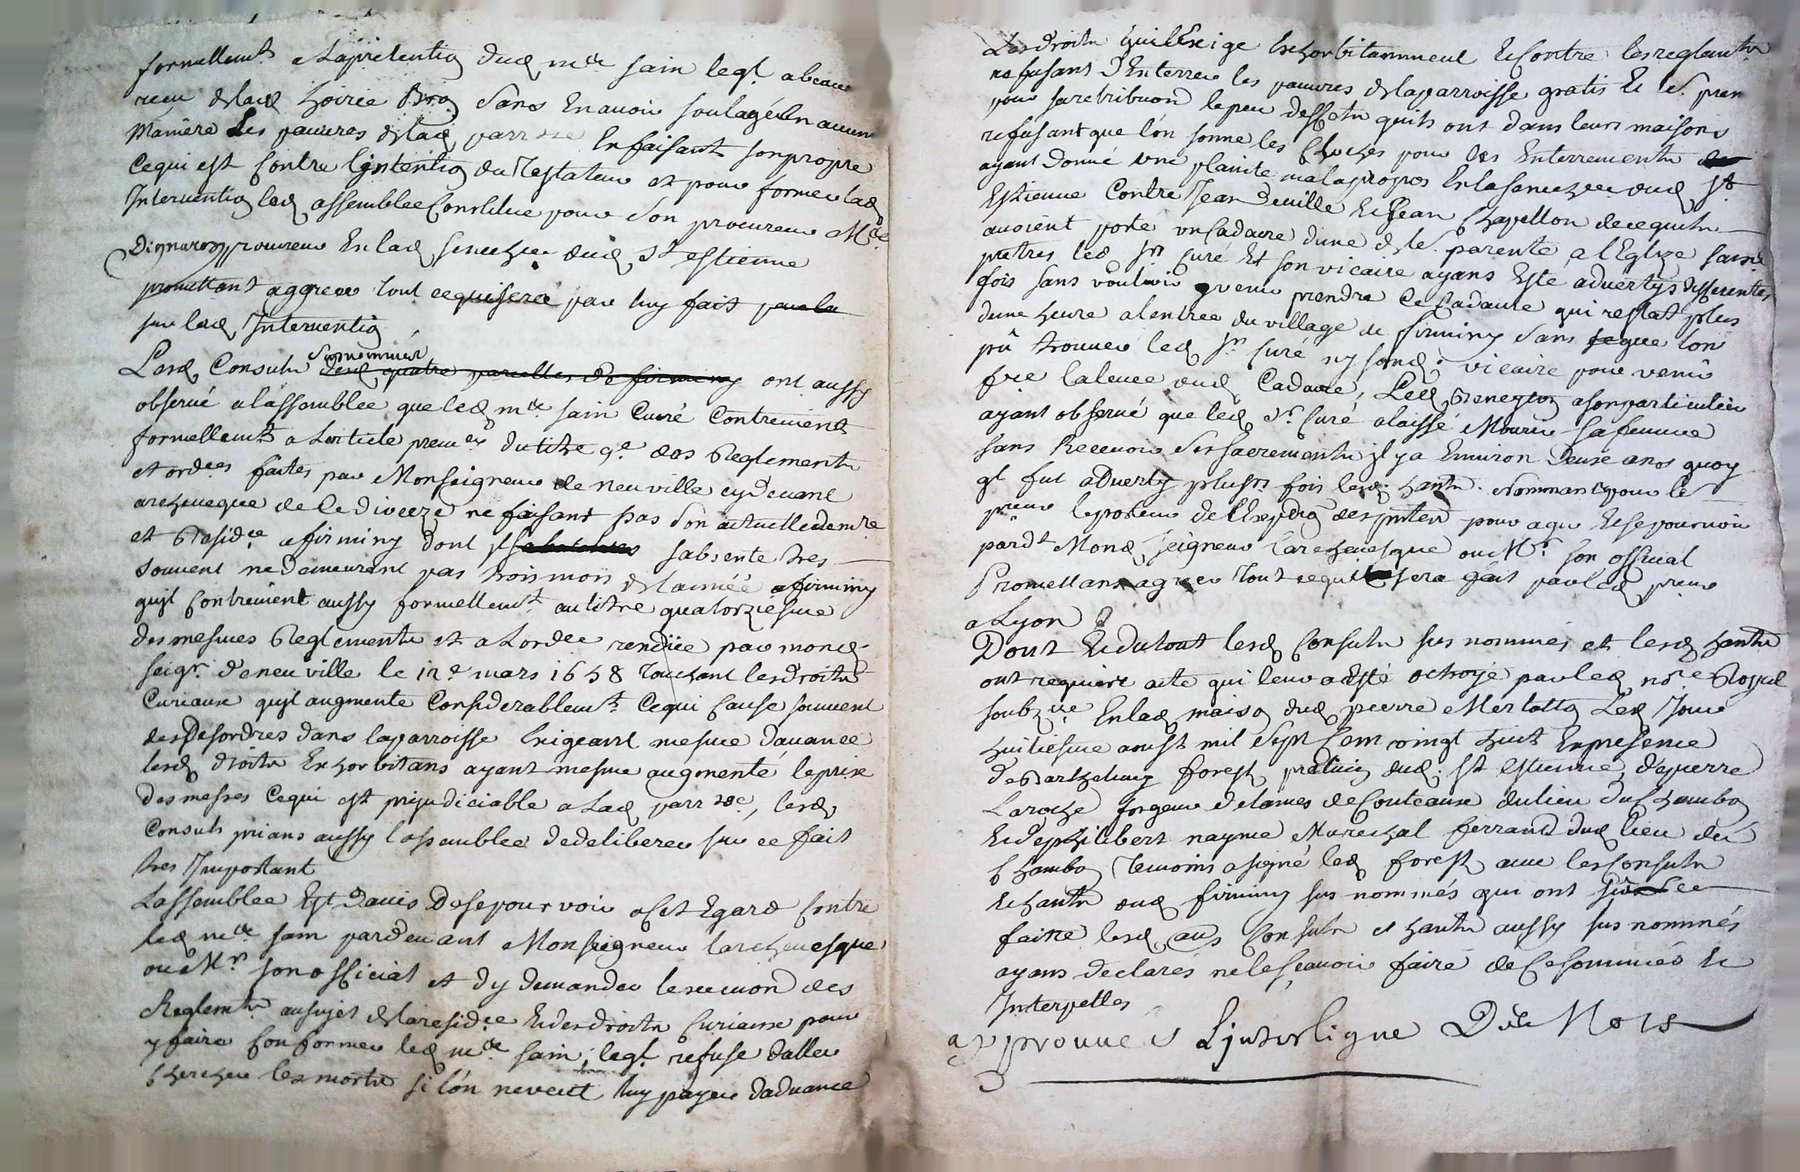 formellemt. a la pretention dud. me. sain leql. a beau
rien de lad. hoirie sans en avoir soulagé en aucune
maniere Les pauvres de lad. parrsse. en faisant son propre
ce qui est contre l'intention du testateur et pour former lad.
Intervention lad. assemblee constitue pour son procureur Me.
Dignaron procureur en lad. senechee. dud. st. estienne
promettant aggreer tout ce qui sera par luy fait par la
sur lad. Intervention
Lesd. Consuls surnommés desd. quatre parcelles de firminy ont aussy
observé a l'assemblee que led. me. sain Curé Contrevient
formellemt. a L'article premer. du titre 9e. des Reglements
et ordces. faites par Monseigneur de neuville cy devant
archeveque de le dioceze ne faisant pas son actuelle demre.
et residce. a firminy dont il s'absente tres
souvent ne demeurant pas trois mois de l'année a firminy
qu'jl contrevient aussy formellemt. au titre quatorziesme
des mesmes Reglements et a Lordce. rendüe par mond.
seigr. de neuville le 12e mars 1658 touchant les droits
Curiaux qujl augmente Considerablemt. Ce qui cause souvent
des Desordres dans la parroisse Exigeant mesme d'avance
lesd. droits Exhorbitans ayant mesme augmenté le prix
des messes Ce qui est prejudiciable a Lad. parrsse, lesd.
Consuls prians aussy l'assemblee de deliberer sur ce fait
tres Important
Lassemblee Est d'avis De se pourvoir a Cet Egard contre
led. me. sain pardevant Monseigneur larchevesque
ou Mr. son official et d'y demander lexecuon. des
Reglemts. au sujet de la residce. et des droits Curiaux pour
y faire conformer led. me. sain, leql. refuse daller
chercher les morts si l'on ne veut luy payer d'advance
Les droits qu'il Exige Exhorbitamment et Contre les reglemts.
refusant d'Enterrer les pauvres de la parroisse gratis et de pren
pour sa retribuon. le peu d'effets quils ont dans leurs maisons
refusant que l'on sonne les cloches pour les Enterrements
ayant donné une plainte mal a propos En la senechee. dud. st.
Estienne Contre Jean Deville et Jean Chapellon de ce quils
avoient porté un Cadavre d'une de le. parente a l'Eglize sans
pretres led. sr. curé et son vicaire ayans Esté advertys differentes
fois sans vouloir venir prendre Ce Cadavre qui restat plus
d'une heure a l'entrée du village de firminy sans que l'on
pû trouver led. sr. curé ny sond. vicaire pour venir
fre la levee dud. Cadavre, Led. Beneyton a son particulier
ayant observé que led. sr. curé a laissé Mourir sa femme
sans Recevoir les sacrements jl y a Environ deux ans quoy
ql. fut adverty plusrs. fois lesd. hants. Nommans pour le
preur. le porteur de l'Expedon. des pntes. pour agir et se pourvoir
pardt. Mond. Seigneur larchevesque ou Mr. son official
Promettans agreer tout ce qui sera fait par led. preur
a Lyon
Dont et du tout lesd. Consuls sus nommés et lesd. hants
ont requis acte qui leur a Esté octroyé par led. nore Royal
soubzne. En lad. maison dud. pierre Merlatton Led. Jour
huitiesme aoust mil sept cent vingt huit En presence
de Barthelemy forest praticien dud. st estienne, de pierre
Laroche forgeur de lames de Couteaux du lieu du Chambon
et de philibert nayme Marechal ferrand dud. lieu du
Chambon temoins a signé led. forest avec les consuls
et hants dud. firminy sus nommés qui ont sçu le
faire lesd. aus Consuls et hants aussy sus nommés
ayans declarés ne le sçavoir faire de Ce sommés et
Interpellés
approuvé L'jnterligne Des Mots